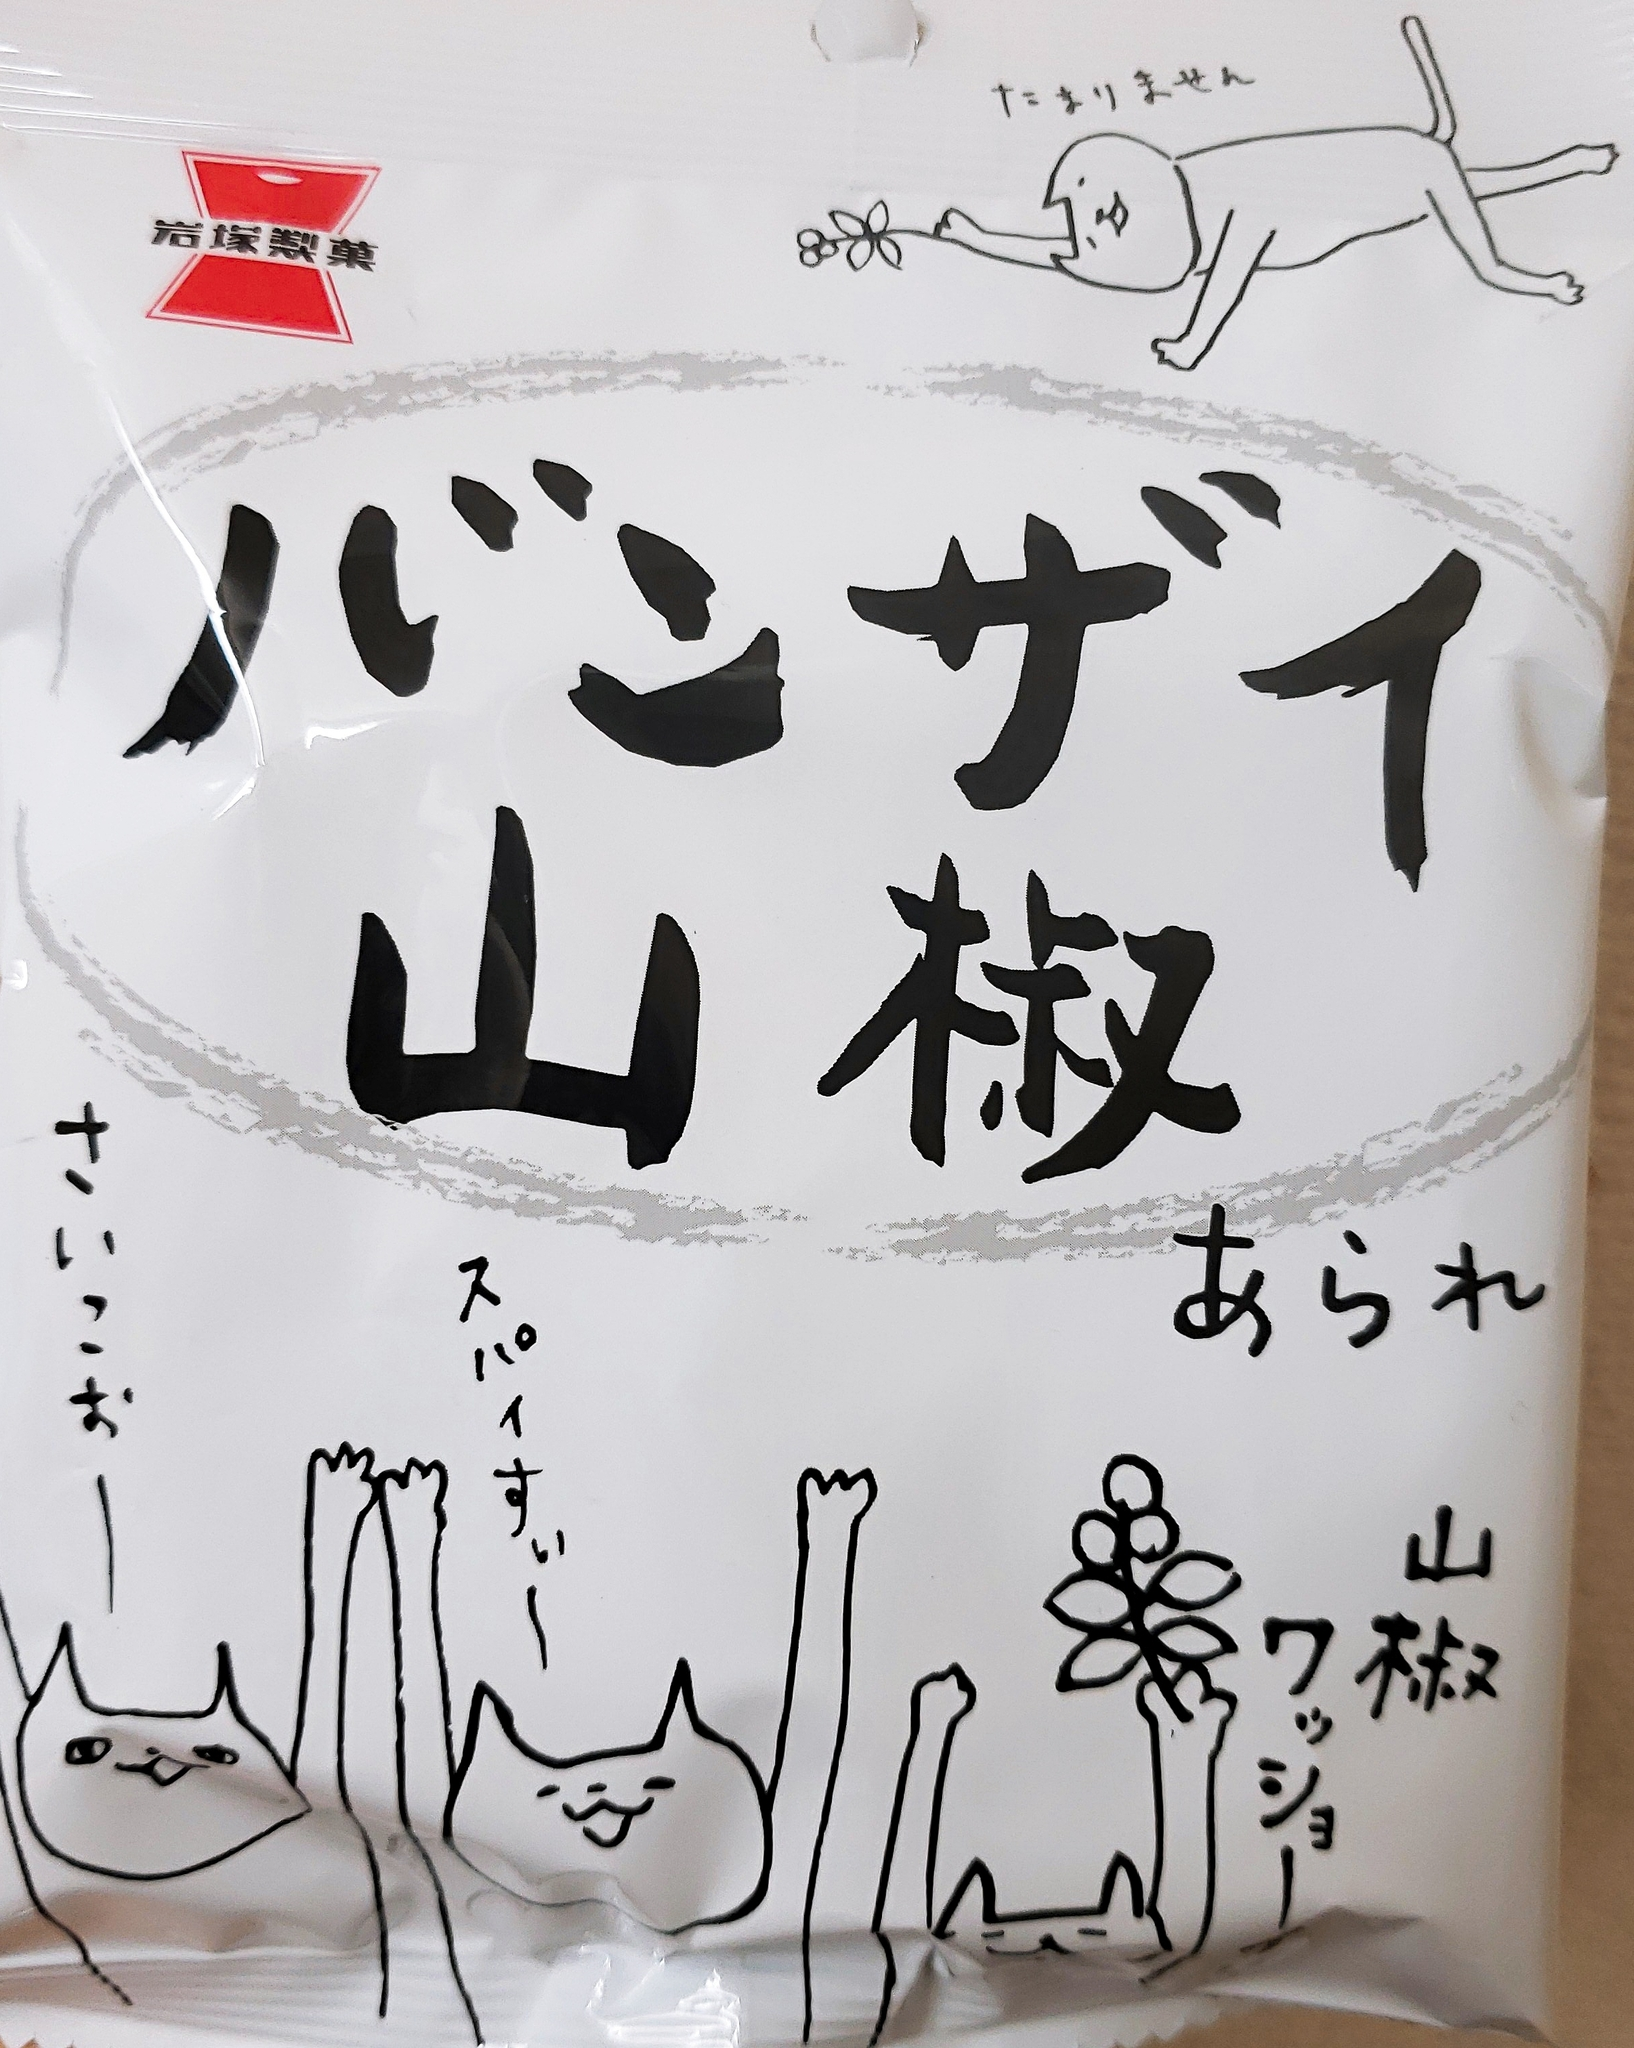 たまりません
岩塚製菓
バンザイ
山椒
あられ
さいこおー
スパイすぃー
山椒
ワッショー